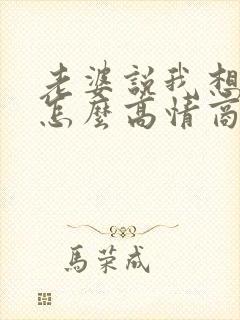 老婆說我想
怎麼高情商
馬荣成